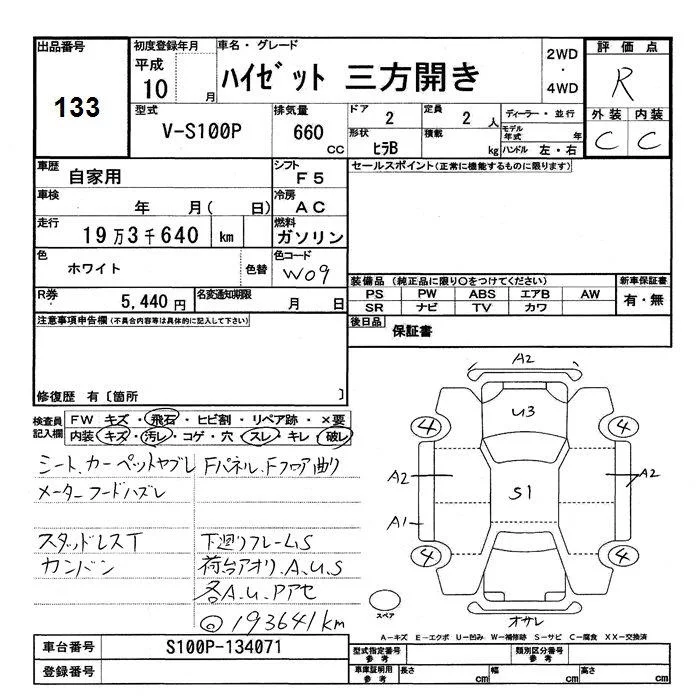 出品番号
133
初度登録年月
平成
10 月
車名・グレード
ハイゼット 三方開き
2WD
・
4WD
評価点
R
外装 内装
C C
型式
V-S100P
排気量
660
CC
ドア
2
定員
2 人
形状
ヒラB
積載
kg
ディーラー・並行
モデル年式 年
ハンドル 左・右
車歴
自家用
シフト
F5
車検
年 月( 日)
冷房
AC
走行
19万3千640 km
燃料
ガソリン
色
ホワイト
色替
色コード
W09
R券
5,440円
名変通知期限
月 日
セールスポイント(正常に機能するものに限ります)
装備品 (純正品に限り○をつけてください)
新車保証書
PS PW ABS エアB AW
SR ナビ TV カワ
有・無
後日品
保証書
注意事項申告欄(不具合内容等は具体的に記入して下さい)
修復歴 有〔箇所 〕
検査員
記入欄
FW キズ・飛石・ヒビ割・リペア跡・×要
内装・キズ・汚レ・コゲ・穴・スレ・キレ・破レ
シート、カーペットヤブレ
Fパネル、Fフロア曲り
メーターフードハズレ
スタッドレスT
下廻りフレームS
カンバン
荷台アオリ、A、U、S
各A、U、Pアセ
◎193641km
A2
U3
4
4
A2
A2
S1
A1
4
4
スペア
オサレ
A−キズ E−エクボ U−凹み W−補修跡 S−サビ C−腐食 XX−交換済
車台番号
S100P-134071
登録番号
型式指定番号
参考
類別区分番号
参考
車庫証明用
参考
長さ cm
幅 cm
高さ cm